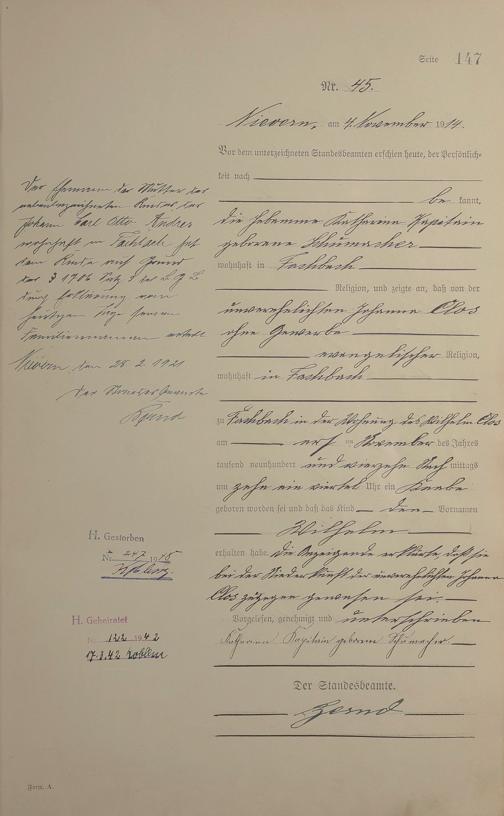 Seite 147
Nr. 45.
Nievern, am 7. November 1914.
Vor dem unterzeichneten Standesbeamten erschien heute, der Persönlich-
keit nach
be kannt,
die Hebamme Katharina Kapitain
geborene Schumacher
wohnhaft in Fachbach
Religion, und zeigte an, daß von der
unverehelichten Johanna Clos
ohne Gewerbe
evangelischer Religion,
wohnhaft in Fachbach
zu Fachbach in der Wohnung des Wilhelm Clos
am November des Jahres
tausend neunhundert und vierzehn Nach mittags
um zehn ein viertel Uhr ein Knabe
geboren worden sei und daß das Kind den Vornamen
Wilhelm
erhalten habe. Die Anzeigende erklärte, daß sie
bei der Niederkunft der unverehelichten Johanna
Clos zugegen gewesen sei.
Vorgelesen, genehmigt und unterschrieben
Katharina Kapitain geborene Schumacher
Der Standesbeamte.
Der Ehemann der Mutter des
nebenbezeichneten Kindes der
Johann Karl Otto
wohnhaft in Fachbach hat
dem Kinde auf Grund
des § 1706 Satz des B G B
durch Erklärung vom
heutigen Tage seinen
Familiennamen erteilt
Nievern, den 28. 2. 1921
Der Standesbeamte
H. Gestorben
Nr. 247 19
H. Geheiratet
Nr. 122 1942
7.3.42 Koblenz
Form. A.